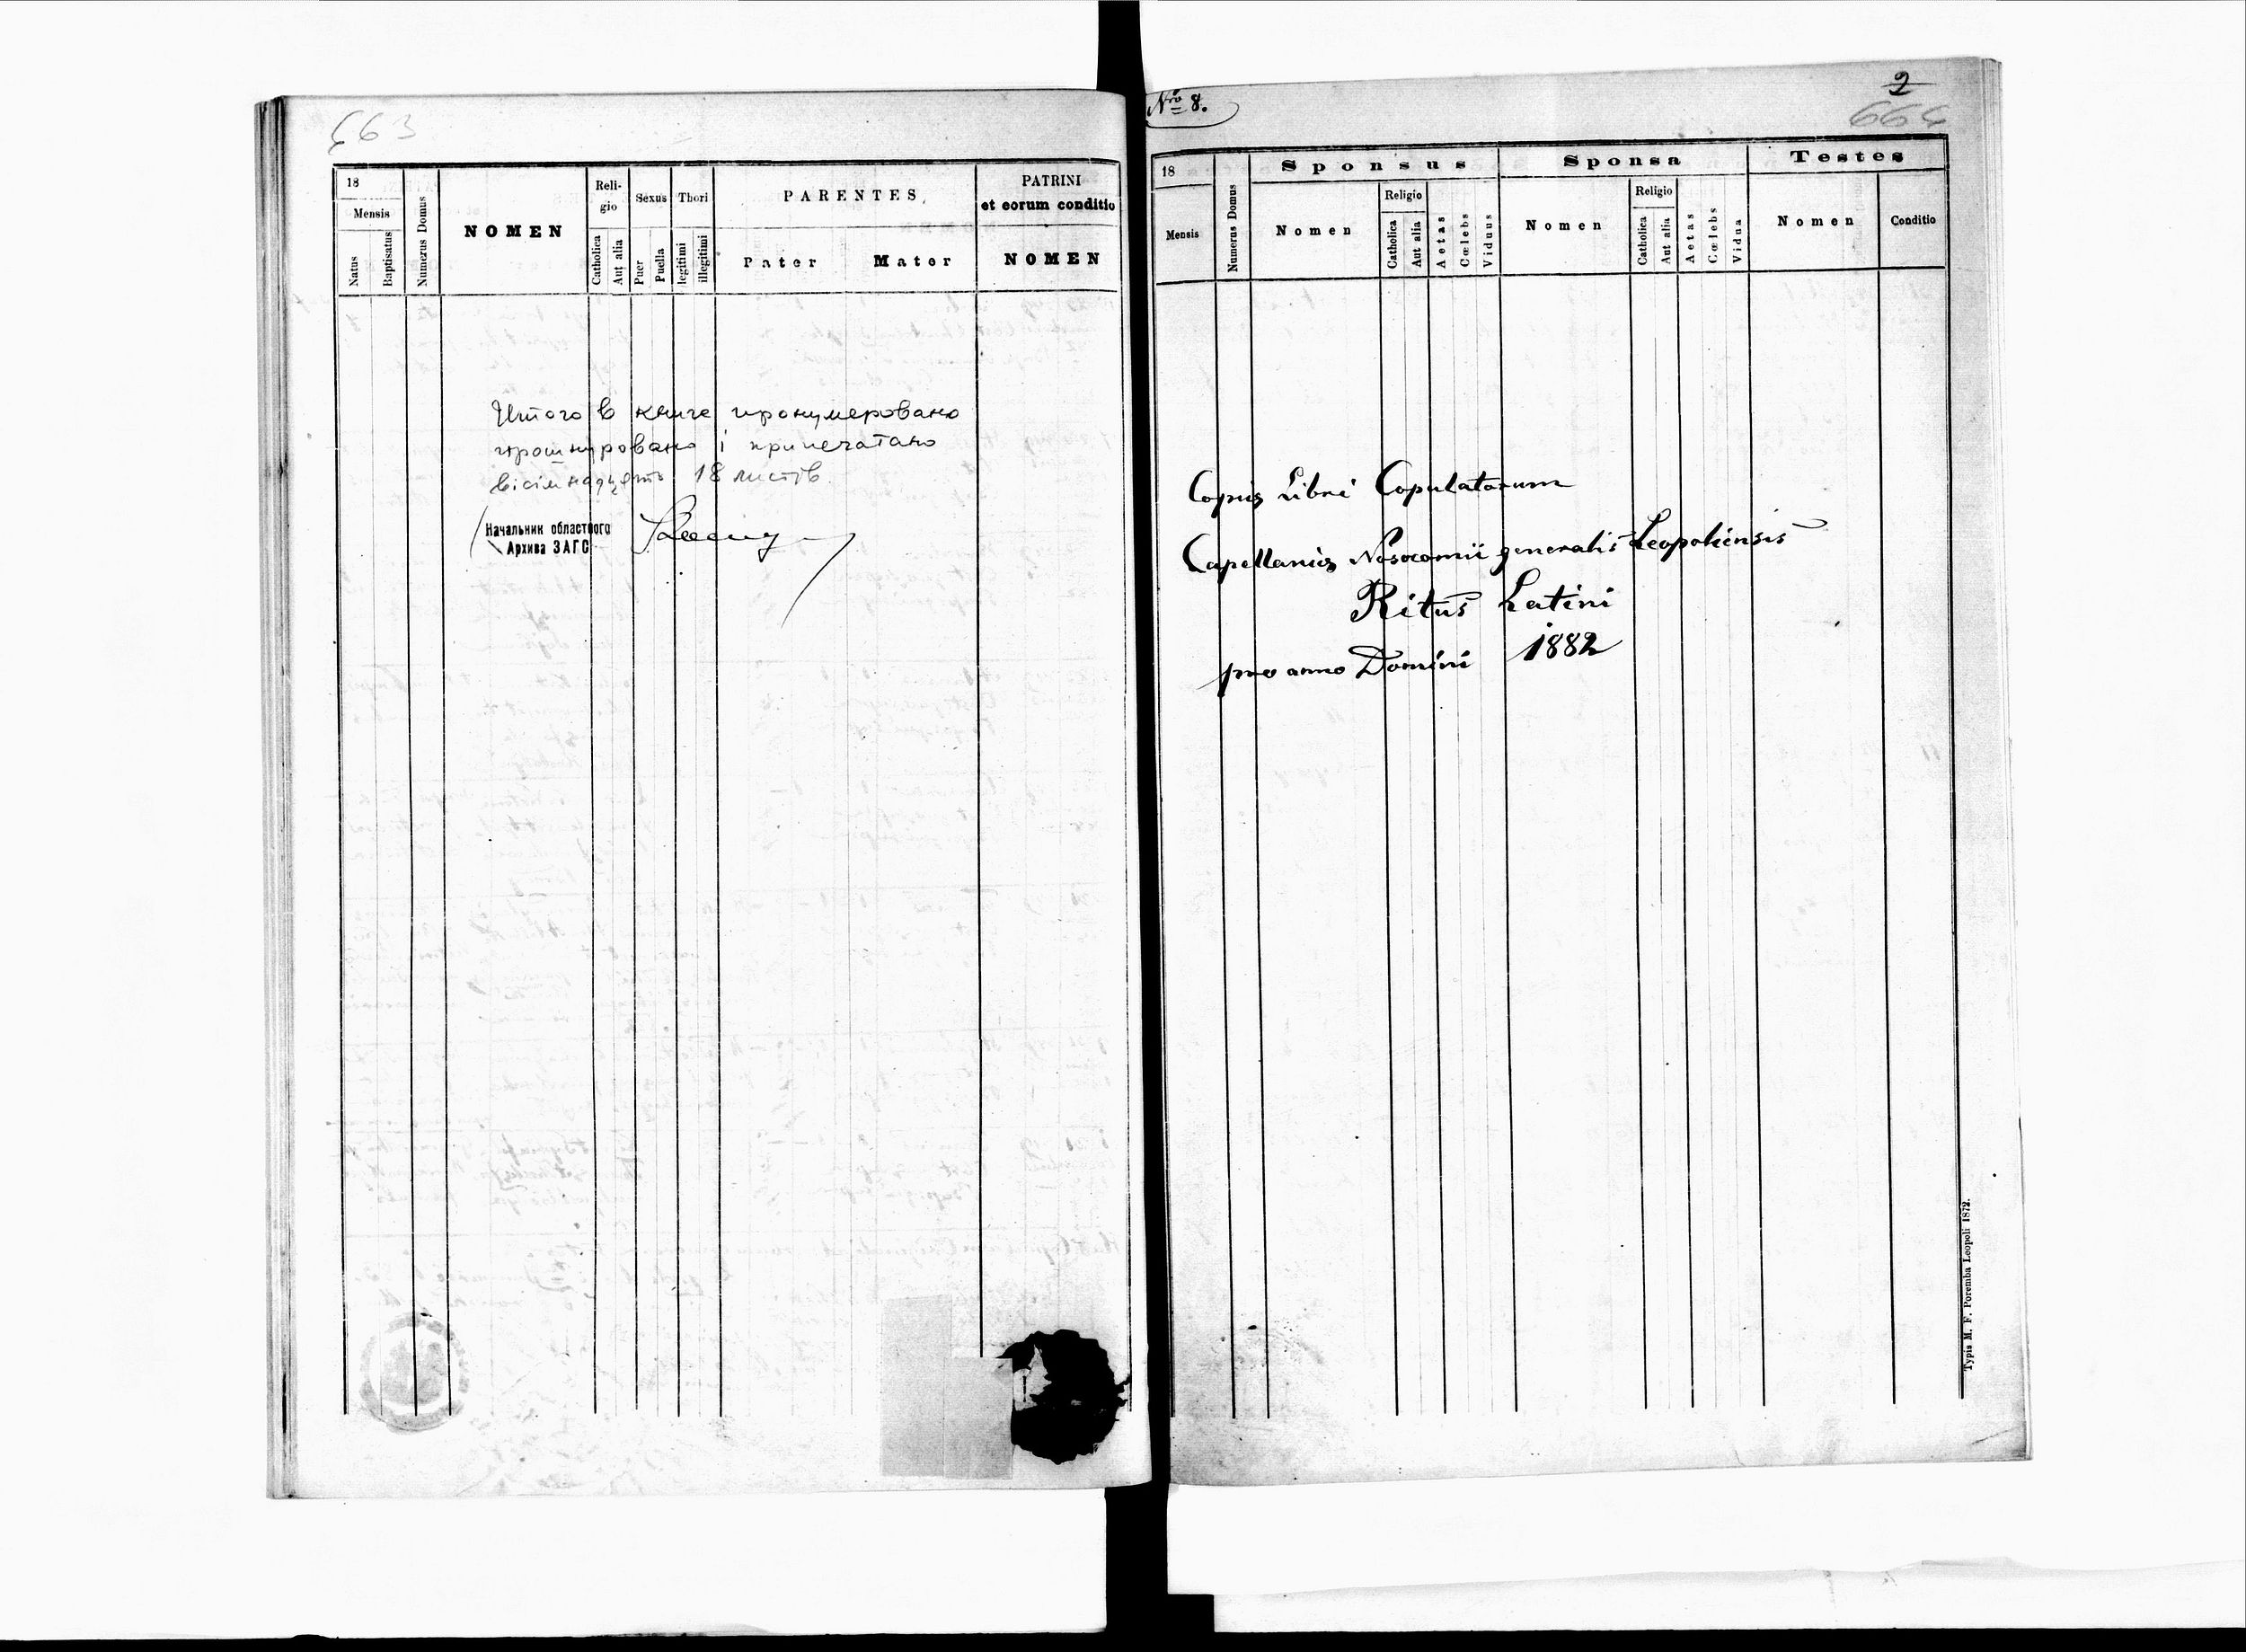 663
18
Mensis
Natus
Baptisatus
Numerus Domus
NOMEN
Reli-
gio
Catholica
Aut alia
Sexus
Puer
Puella
Thori
legitimi
illegitimi
PARENTES
Pater
Mater
PATRINI
et eorum conditio
NOMEN
Итого в книге пронумеровано
прошнуровано і припечатано
вісімнадцять 18 листів
Начальник областного
Архива ЗАГС
Nro 8.
2
664
18
Mensis
Numerus Domus
Sponsus
Nomen
Religio
Catholica
Aut alia
Aetas
Cœlebs
Viduus
Sponsa
Nomen
Religio
Catholica
Aut alia
Aetas
Cœlebs
Vidua
Testes
Nomen
Conditio
Copia Libri Copulatorum
Capellaniae Nosocomii generalis Leopoliensis
Ritus Latini
pro anno Domini 1882
Typis M. F. Poremba Leopoli 1872.